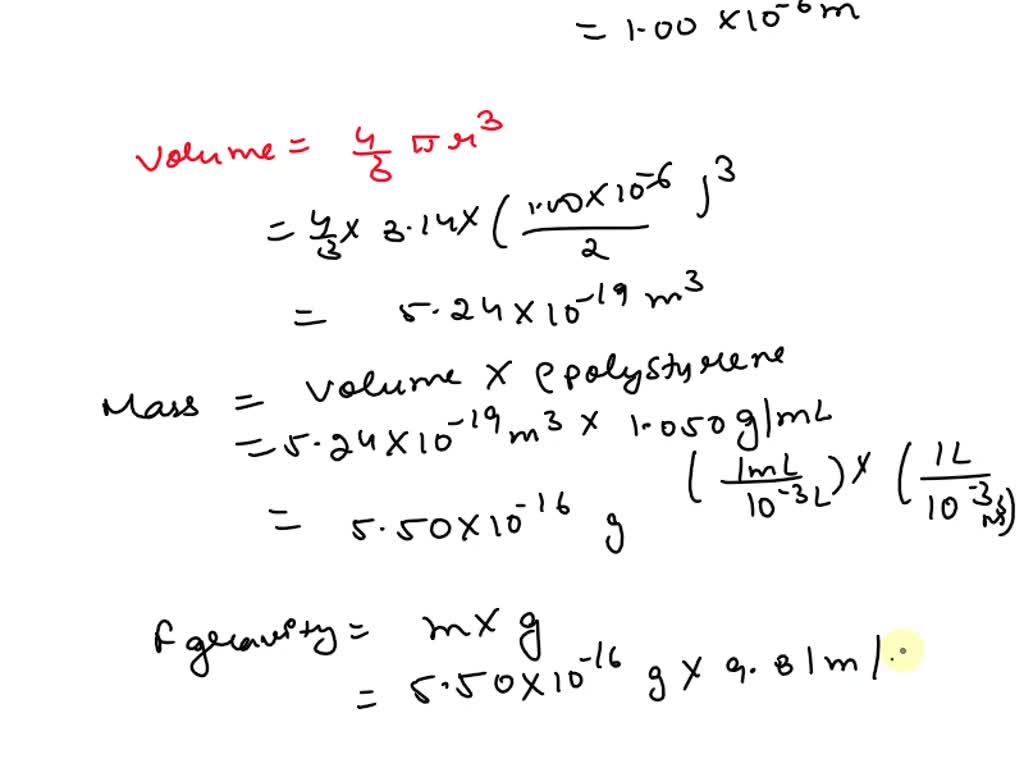 = 1.00 × 10⁻⁶ m
Volume = 4/3 π r³
= 4/3 × 3.14 × (1.00 × 10⁻⁶ / 2)³
= 5.24 × 10⁻¹⁹ m³
Mass = Volume × ρ polystyrene
= 5.24 × 10⁻¹⁹ m³ × 1.050 g/mL
(1mL / 10⁻³ L) × (1L / 10⁻³ m³)
= 5.50 × 10⁻¹⁶ g
F gravity = m × g
= 5.50 × 10⁻¹⁶ g × 9.81 m/